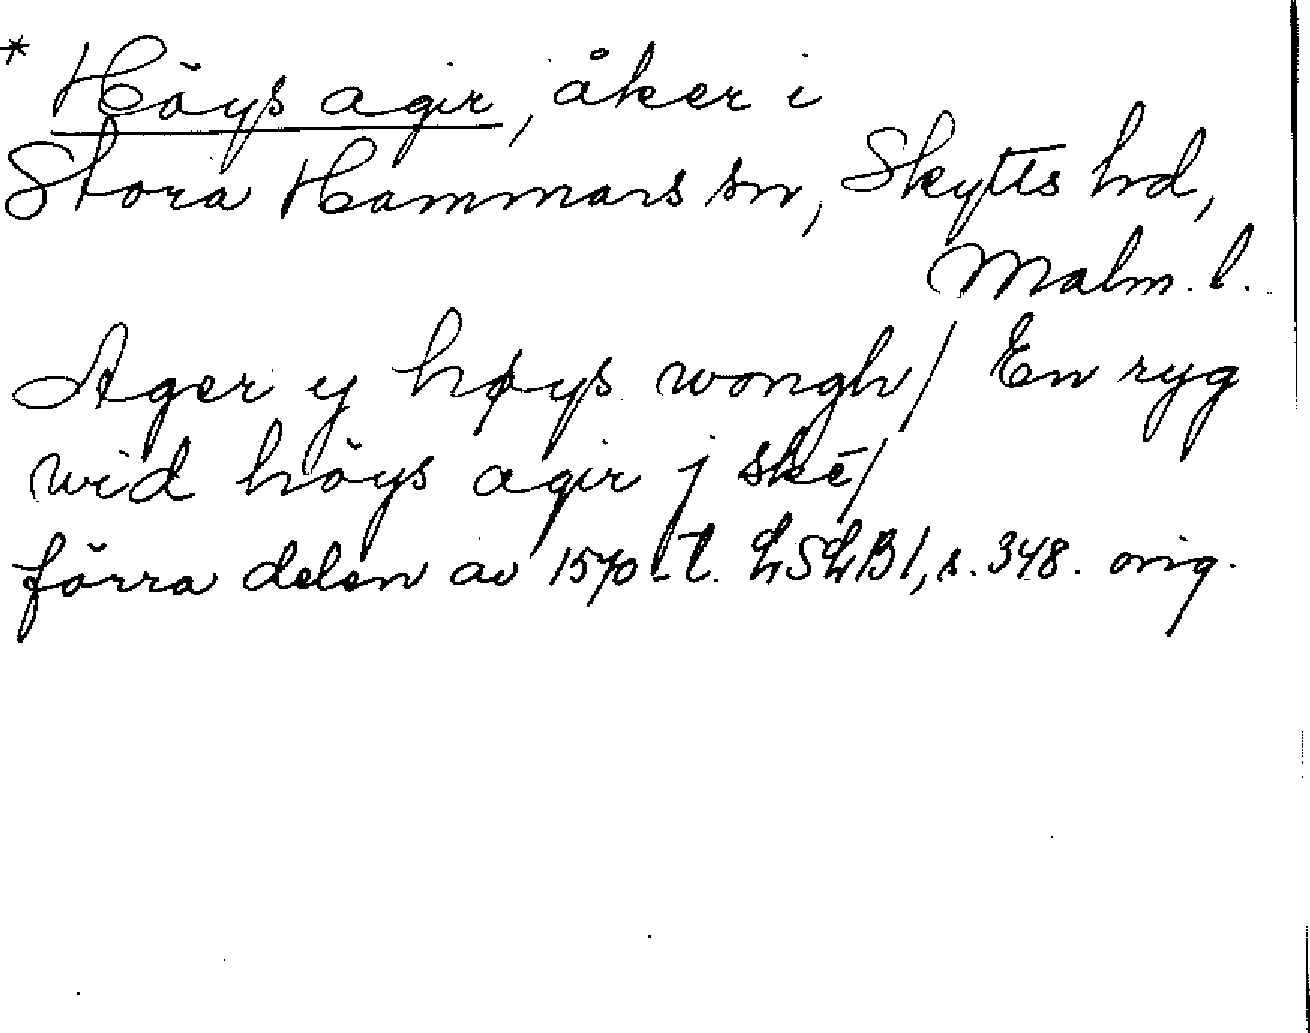 * Höys agir, åker i
Stora Hammars sn, Skytts hd,
Malm. l.
Ager y høys wongh / En ryg
wid höys agir j skē /
förra delen av 1570-t. LSLB 1, s. 348. orig.